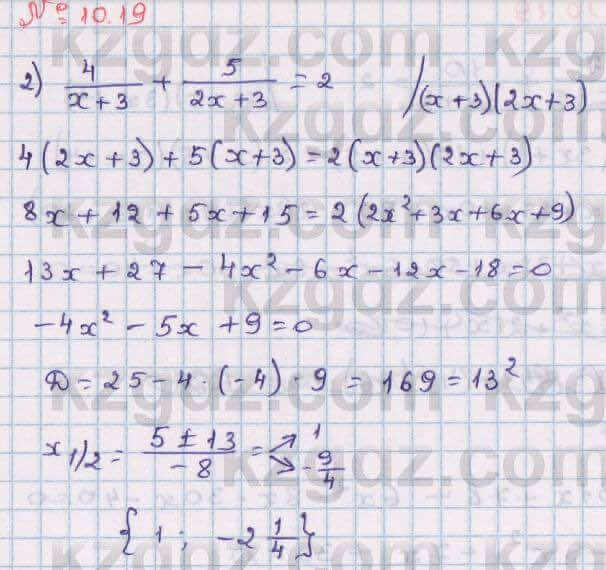 № 10.19
2) 4/(x+3) + 5/(2x+3) = 2 /(x+3)(2x+3)
4(2x+3)+5(x+3)=2(x+3)(2x+3)
8x+12+5x+15=2(2x²+3x+6x+9)
13x+27-4x²-6x-12x-18=0
-4x²-5x+9=0
D=25-4·(-4)·9=169=13²
x1/2=(5±13)/-8= 1
-9/4
{1; -2 1/4}
kzgdz.com